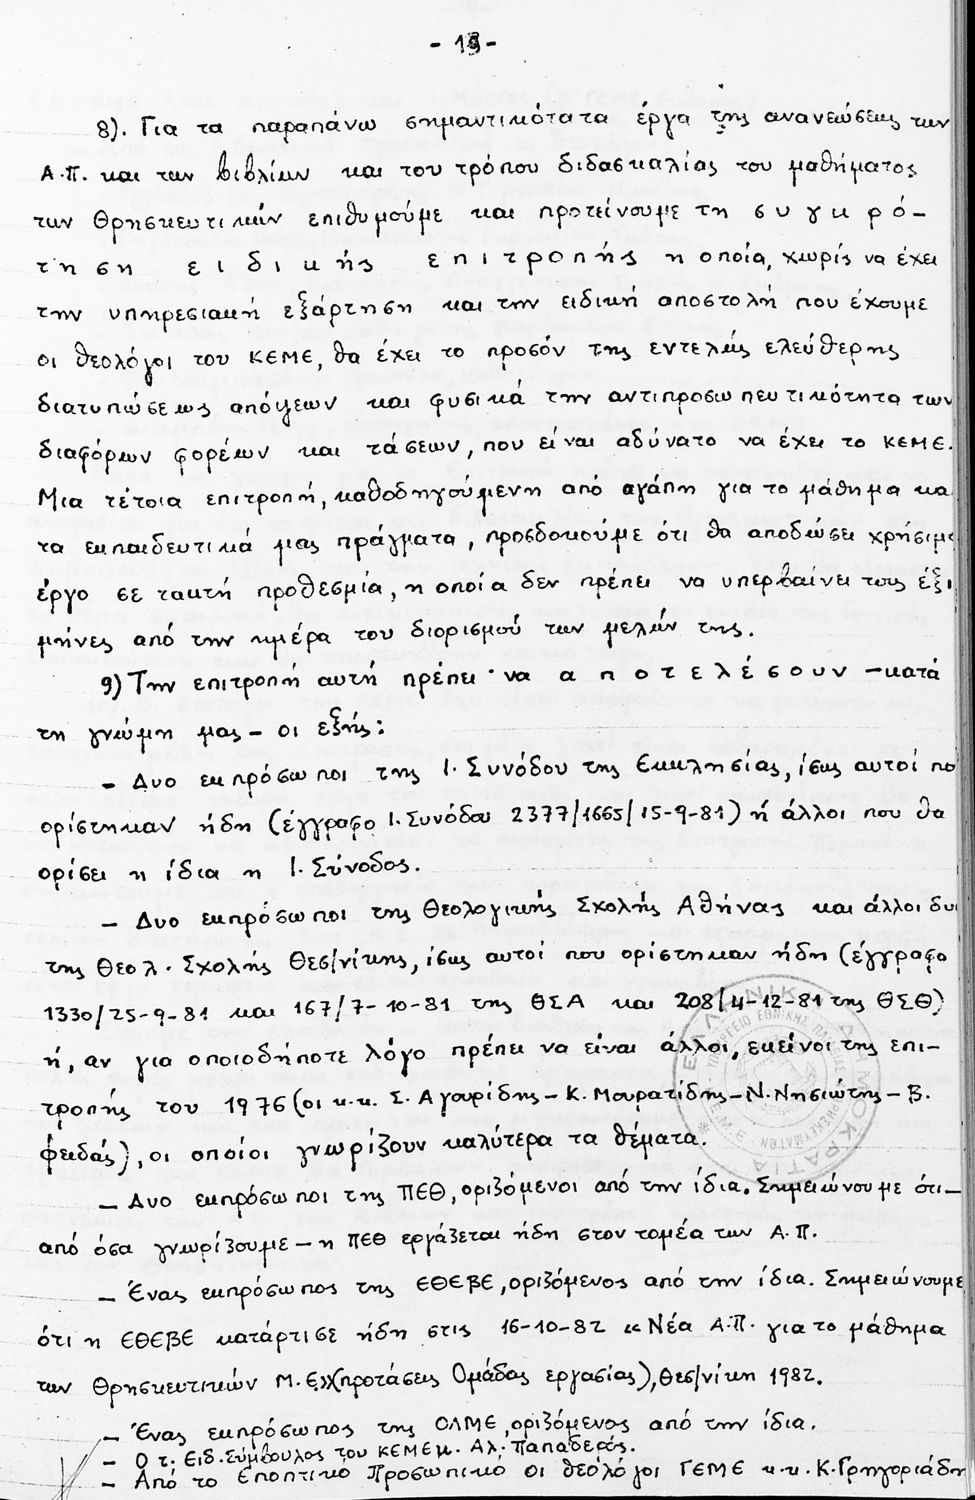 - 15 -
8). Για τα παραπάνω σημαντικότατα έργα της ανανεώσεως των
Α.Π. και των βιβλίων και του τρόπου διδασκαλίας του μαθήματος
των Θρησκευτικών επιθυμούμε και προτείνουμε τη σ υ γ κ ρ ό -
τ η σ η ε ι δ ι κ ή ς ε π ι τ ρ ο π ή ς η οποία, χωρίς να έχει
την υπηρεσιακή εξάρτηση και την ειδική αποστολή που έχουμε
οι θεολόγοι του ΚΕΜΕ, θα έχει το προσόν της εντελώς ελεύθερης
διατυπώσεως απόψεων και φυσικά την αντιπροσωπευτικότητα των
διαφόρων φορέων και τάσεων, που είναι αδύνατο να έχει το ΚΕΜΕ.
Μια τέτοια επιτροπή, καθοδηγούμενη από αγάπη για το μάθημα και
τα εκπαιδευτικά μας πράγματα, προσδοκούμε ότι θα αποδώσει χρήσιμο
έργο σε τακτή προθεσμία, η οποία δεν πρέπει να υπερβαίνει τους έξι
μήνες από την ημέρα του διορισμού των μελών της.
9) Την επιτροπή αυτή πρέπει να α π ο τ ε λ έ σ ο υ ν - κατά
τη γνώμη μας - οι εξής:
- Δυο εκπρόσωποι της Ι. Συνόδου της Εκκλησίας, ίσως αυτοί πο
ορίστηκαν ήδη (έγγραφο Ι. Συνόδου 2377/1665/15-9-81) ή άλλοι που θα
ορίσει η ίδια η Ι. Σύνοδος.
- Δυο εκπρόσωποι της Θεολογικής Σχολής Αθήνας και άλλοι δυο
της Θεολ. Σχολής Θεσ/νίκης, ίσως αυτοί που ορίστηκαν ήδη (έγγραφο
1330/25-9-81 και 167/7-10-81 της ΘΣΑ και 208/4-12-81 της ΘΣΘ)
ή, αν για οποιοδήποτε λόγο πρέπει να είναι άλλοι, εκείνοι της επι-
τροπής του 1976 (οι κ.κ. Σ. Αγουρίδης - Κ. Μουρατίδης - Ν. Νησιώτης - Β.
Φειδάς), οι οποίοι γνωρίζουν καλύτερα τα θέματα.
- Δυο εκπρόσωποι της ΠΕΘ, οριζόμενοι από την ίδια. Σημειώνουμε ότι -
από όσα γνωρίζουμε - η ΠΕΘ εργάζεται ήδη στον τομέα των Α.Π.
- Ένας εκπρόσωπος της ΕΘΕΒΕ, οριζόμενος από την ίδια. Σημειώνουμε
ότι η ΕΘΕΒΕ κατάρτισε ήδη στις 16-10-82 «Νέα Α.Π. για το μάθημα
των Θρησκευτικών Μ.Ε.» (προτάσεις Ομάδας εργασίας), Θεσ/νίκη 1982.
- Ένας εκπρόσωπος της ΟΛΜΕ, οριζόμενος από την ίδια.
- Ο τ. Ειδ. Σύμβουλος του ΚΕΜΕ κ. Αλ. Παπαδερός.
- Από το Εποπτικό Προσωπικό οι θεολόγοι ΓΕΜΕ κ.κ. Κ. Γρηγοριάδη
ΕΛΛΗΝΙΚΗ ΔΗΜΟΚΡΑΤΙΑ